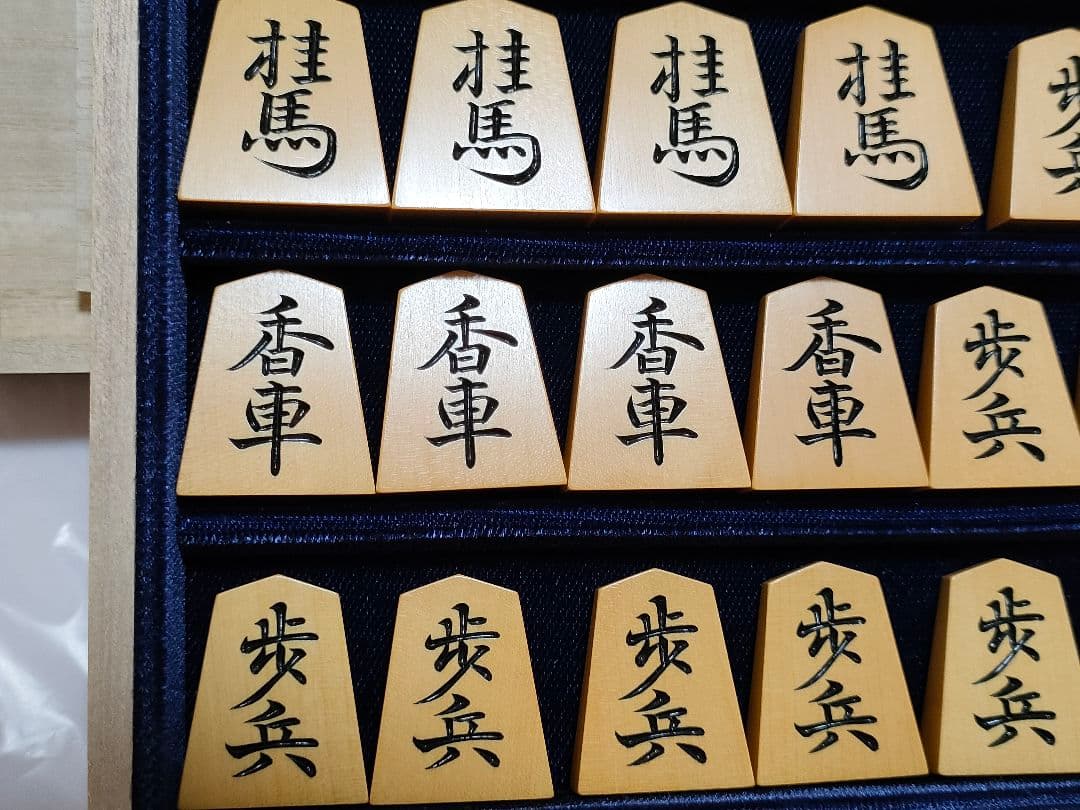 桂馬 桂馬 桂馬 桂馬 歩兵
香車 香車 香車 香車 歩兵
歩兵 歩兵 歩兵 歩兵 歩兵